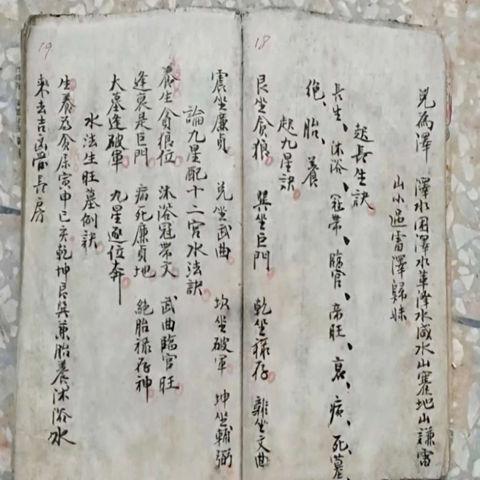 18
兌為澤 澤水困澤水革澤水咸水山蹇地山謙雷
山小過雷澤歸妹
起長生訣
長生、沐浴、冠帶、臨官、帝旺、衰、病、死、墓、
絶、胎、養
起九星訣
艮坐貪狼 巽坐巨門 乾坐祿存 離坐文曲
19
震坐廉貞 兌坐武曲 坎坐破軍 坤坐輔弼
論九星配十二宮水法訣
養生貪狼位 沐浴冠帶文 武曲臨官旺
逢衰是巨門 病死廉貞地 絶胎祿存神
大墓逢破軍 九星逐位奔
水法生旺墓例訣
生養為貪原寅申巳亥乾坤艮巽兼胎養沐浴水
來去吉凶 長房